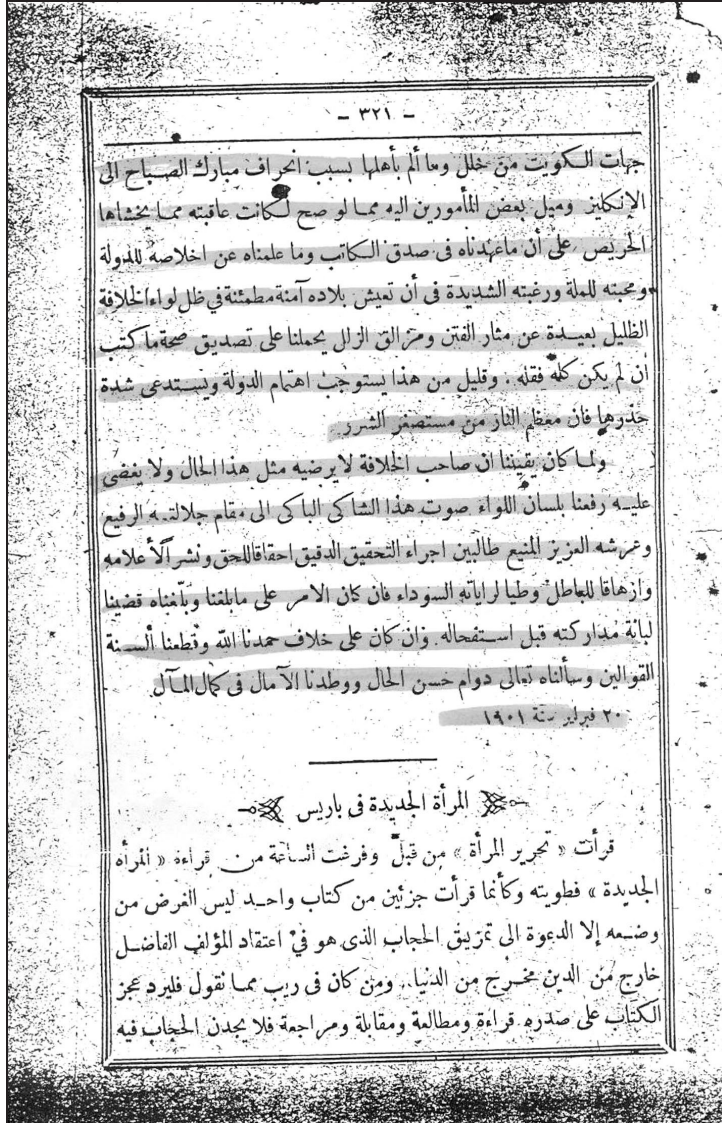 - ٣٢١ -
جهات الكويت من خلل وما ألم بأهلها بسبب انحراف مبارك الصباح الى
الإنكليز وميل بعض المأمورين اليه مما لو صح لكانت عاقبته مما يخشاها
الحريص على أن ماعهدناه فى صدق الكاتب وما علمناه عن اخلاصه للدولة
ومحبته للملة ورغبته الشديدة فى أن تعيش بلاده آمنة مطمئنة في ظل لواء الخلافة
الظليل بعيدة عن مثار الفتن ومزالق الزلل يحملنا على تصديق صحة ما كتب
ان لم يكن كله فقله . وقليل من هذا يستوجب اهتمام الدولة ويستدعى شدة
حذرها فان معظم النار من مستصغر الشرر
ولما كان يقيننا ان صاحب الخلافة لا يرضيه مثل هذا الحال ولا يغضى
عليه رفعنا بلسان اللواء صوت هذا الشاكى الباكى الى مقام جلالته الرفيع
وعرشه العزيز المنيع طالبين اجراء التحقيق الدقيق احقاقا للحق ونشرا لأعلامه
وازهاقا للباطل وطيا لراياته السوداء فان كان الامر على مابلغنا وبلّغناه قضينا
لبانة مداركته قبل استفحاله وان كان على خلاف حمدنا الله وقطعنا ألسنة
القوالين وسألناه تعالى دوام حسن الحال ووطدنا الآمال فى كمال المآل
٢٠ فبراير سنة ١٩٠١
المرأة الجديدة فى باريس
قرأت « تحرير المرأة » من قبل وفرغت الساعة من قراءة « المرأه
الجديدة » فطويته وكأنما قرأت جزئين من كتاب واحد ليس الغرض من
وضعه إلا الدعوة الى تمزيق الحجاب الذى هو في اعتقاد المؤلف الفاضل
خارج من الدين مخرج من الدنيا .. ومن كان فى ريب مما نقول فليرد عجز
الكتاب على صدره قراءة ومطالعة ومقابلة ومراجعة فلا يجدن الحجاب فيه